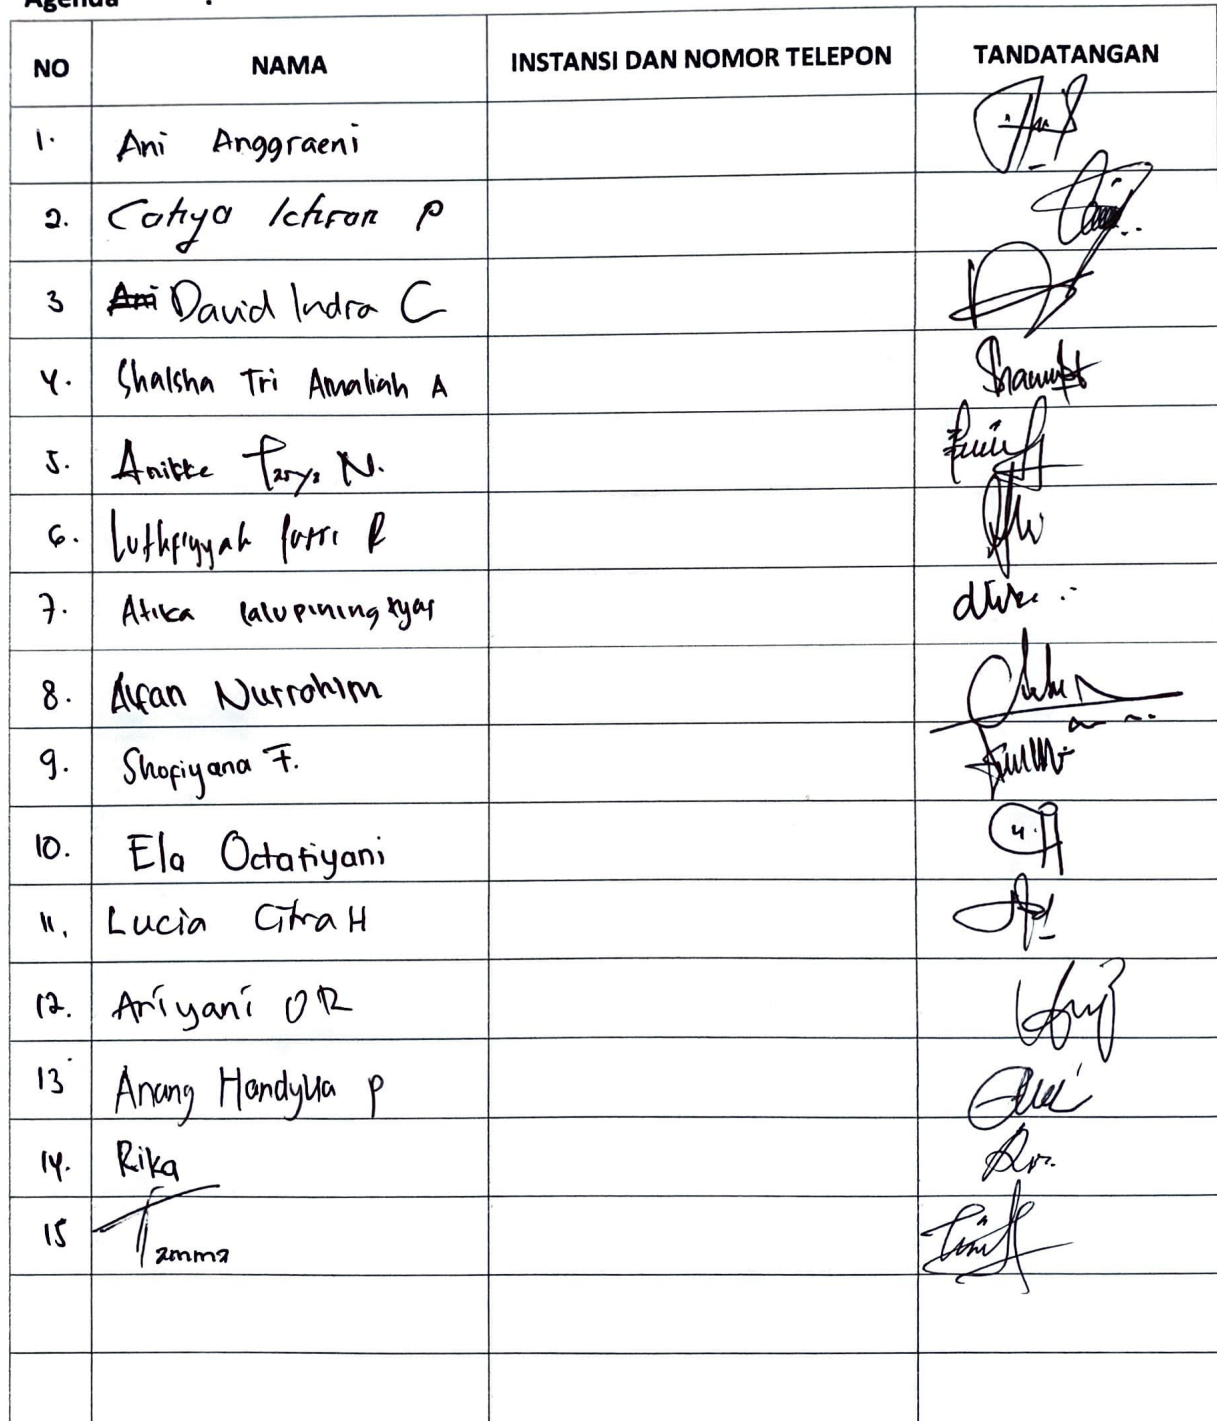 Agenda :
NO NAMA INSTANSI DAN NOMOR TELEPON TANDATANGAN
1. Ani Anggraeni
2. Cahya Ichsan P
3 Ani David Indra C
4. Shalsha Tri Amaliah A
5. Anikke N.
6. Luthfiyyah Putri R
7. Atika
8. Alfan Nurrohim
9. Shofiyana F.
10. Ela Octafiyani
11. Lucia Citra H
12. Ariyani OR
13 Anang Handyka P
14. Rika
15 Tamma